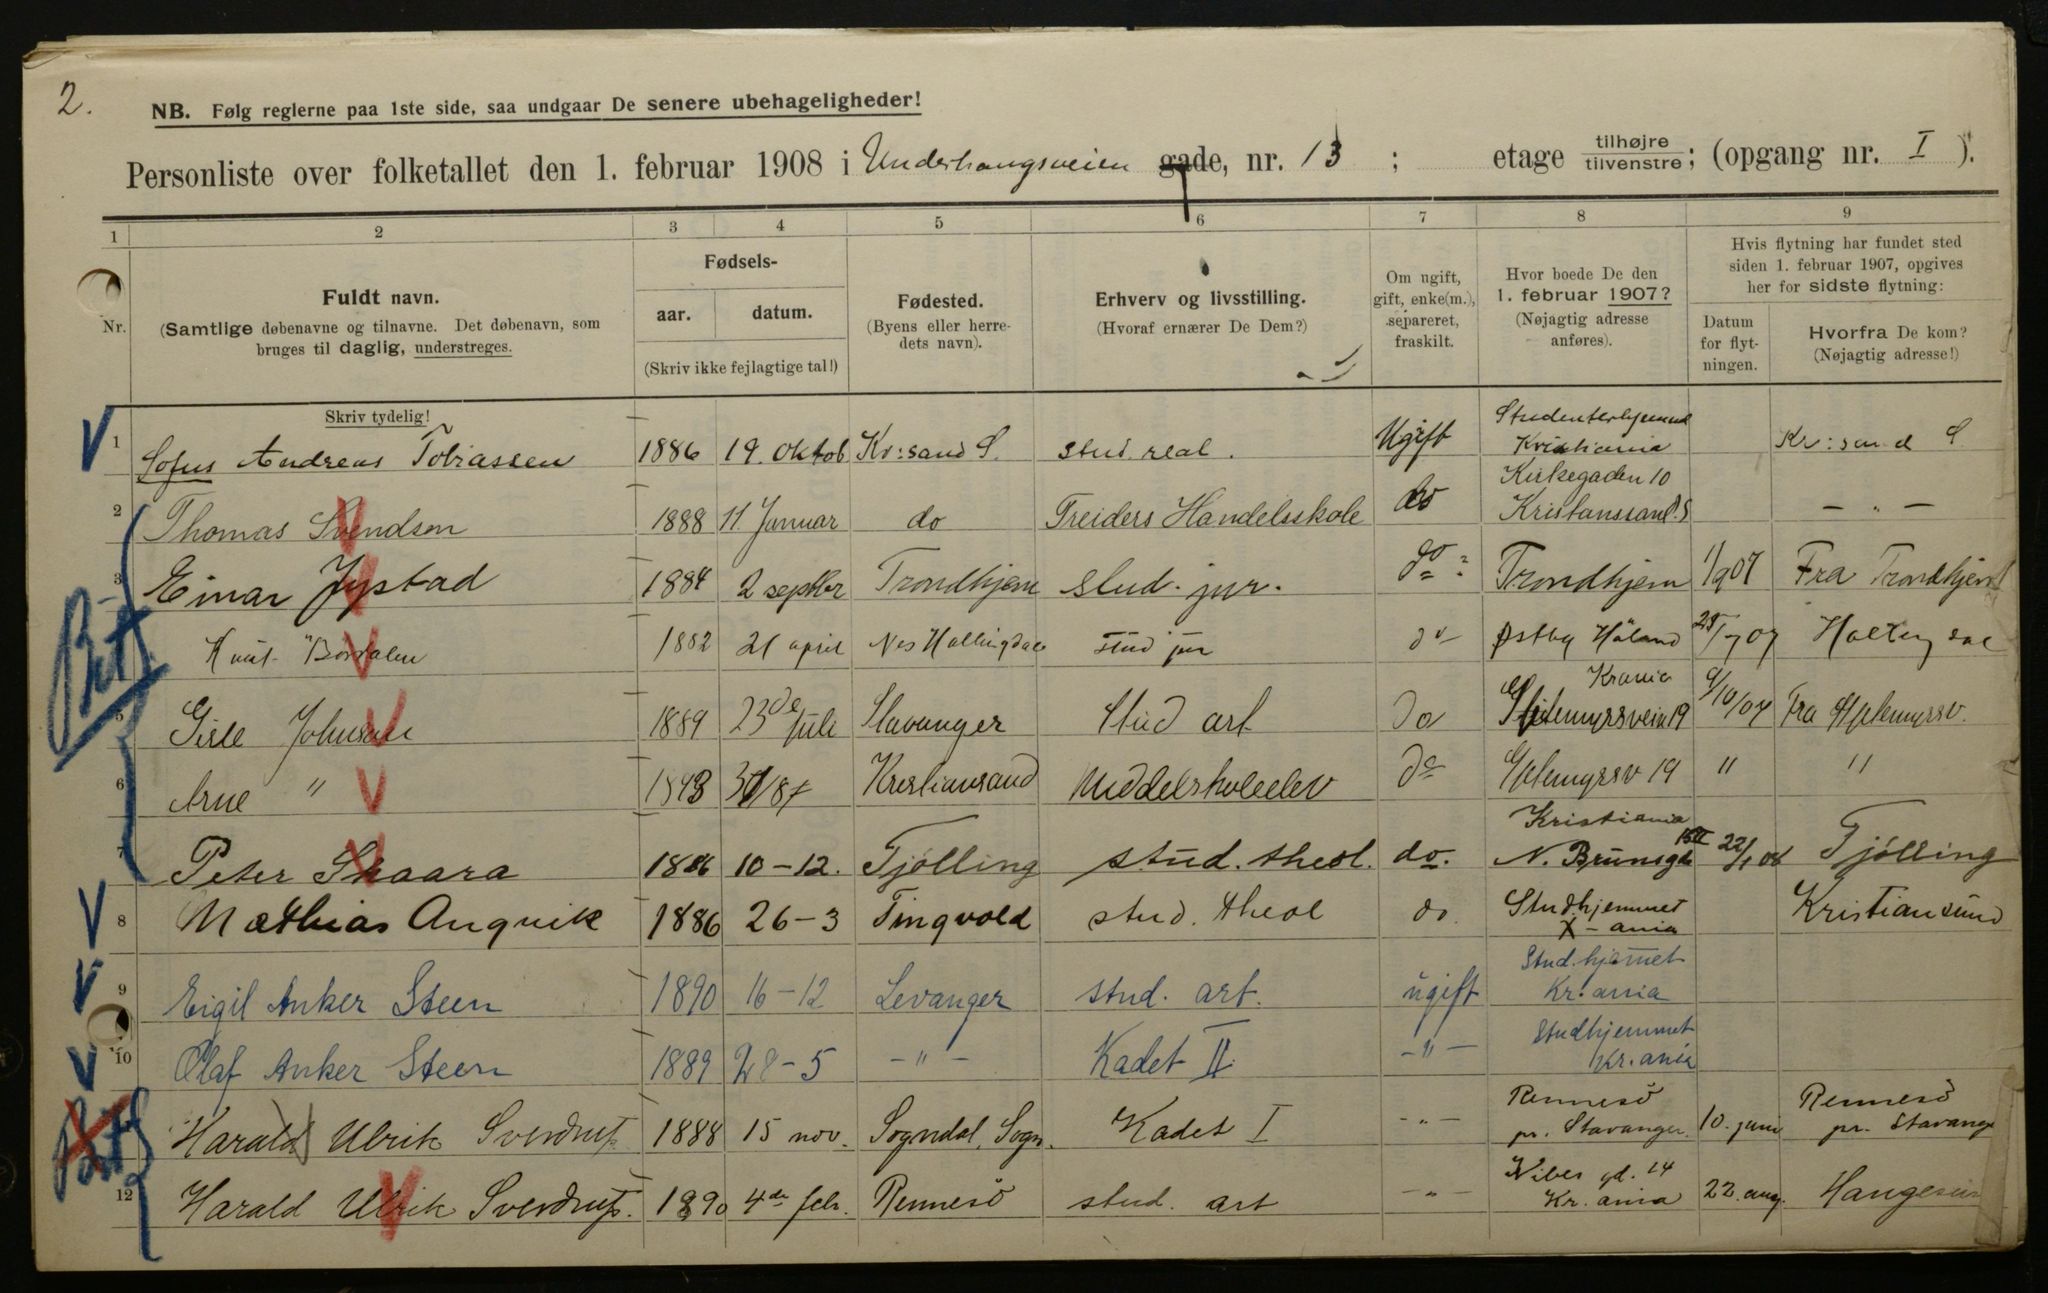 2.
NB. Følg reglerne paa 1ste side, saa undgaar De senere ubehageligheder!
Personliste over folketallet den 1. februar 1908 i Underhaugsveien gade, nr. 13 ; etage tilhøjre tilvenstre; (opgang nr. I ).
1 2 3 4 5 6 7 8 9
Nr.
Fuldt navn.
(Samtlige døbenavne og tilnavne. Det døbenavn, som
bruges til daglig, understreges.
Skriv tydelig!
Fødsels-
aar. datum.
(Skriv ikke fejlagtige tal!)
Fødested.
(Byens eller herre-
dets navn).
Erhverv og livsstilling.
(Hvoraf ernærer De Dem?)
Om ugift,
gift, enke(m.),
separeret,
fraskilt.
Hvor boede De den
1. februar 1907?
(Nøjagtig adresse
anføres).
Hvis flytning har fundet sted
siden 1. februar 1907, opgives
her for sidste flytning:
Datum
for flyt-
ningen.
Hvorfra De kom?
(Nøjagtig adresse!)
1 Sofus Andreas Tobiassen 1886 19. Oktob Kr:sand S. stud. real. Ugift Kristiania Kr:sand S.
2 Thomas Svendsen 1888 11 Januar do Treiders Handelsskole do Kirkegaden 10 Kristanssand.S — " —
3 Einar Jystad 1884 2 septbr Trondhjem stud. jur. do Trondhjem 1/9 07 Fra Trondhjem
Knut 1882 21 april Nes Hallingdal stud jur do Østby Høland 07
5 Gisle Johnson 1889 23de Juli Stavanger Stud art do Krania 9/10/07
6 Arne " Kristiansand Middelskoleelev do " "
7 Peter Skaara 1886 10-12. Tjølling stud. theol. do. Kristiania N. Brunsgd. 22/1 08 Tjølling
8 Mathias Angvik 1886 26-3 Tingvold stud. theol do. Studhjemmet X-ania Kristiansund
9 Eigil Anker Steen 1890 16-12 Levanger stud. art. ugift Stud.hjemmet Kr:ania
10 Olaf Anker Steen 1889 28-5 -"- Kadet II. -"- Studhjemmet Kr.ania
Harald Ulrik Sverdrup 1888 15 nov. Sogndal, Sogn. Kadet I -"- Rennesö pr. Stavanger. 10. juni Rennesö pr. Stavanger
12 Harald Ulrik Sverdrup. 1890 4de febr. Rennesö stud. art -"- gd. 14 Kr.ania 22. aug.